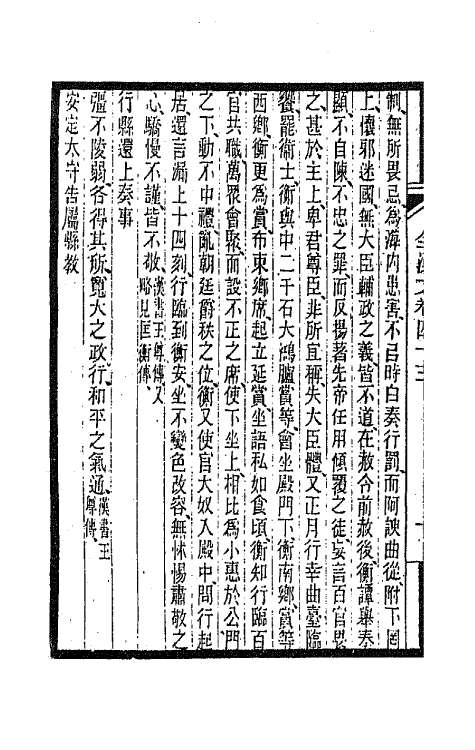 制無所畏忌為海内患害不以時白奏行罰而阿諛曲從附下罔
上懷邪迷國無大臣輔政之義皆不道在赦令前赦後衡譚舉奏
顯不自陳不忠之罪而反揚著先帝任用傾覆之徒妄言百官畏
之甚於主上卑君尊臣非所宜稱失大臣體又正月行幸曲臺臨
饗罷衛士衡與中二千石大鴻臚賞等會坐殿門下衡南鄉賞等
西鄉衡更為賞布東鄉席起立延賞坐語私如食頃衡知行臨百
官共職萬眾會聚而設不正之席使下坐上相比為小惠於公門
之下動不中禮亂朝廷爵秩之位衡又使官大奴入殿中問行起
居還言漏上十四刻行臨到衡安坐不變色改容無怵惕肅敬之
心驕慢不謹皆不敬漢書王尊傳又略見匡衡傳
行縣還上奏事
彊不陵弱各得其所寬大之政行和平之氣通漢書王尊傳
安定太守告屬縣教
全漢文卷四十三